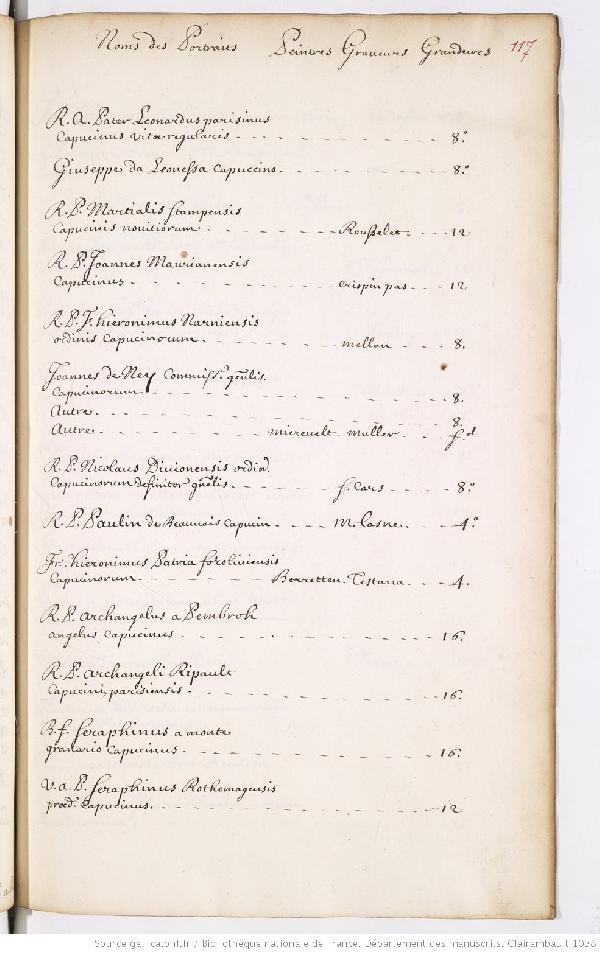 Noms des Portraits Peintres Graveurs Grandeures 117
R. A. Pater Leonardus parisinus
Capucinus vitæ regularis - - - 8.°
Giuseppe da Leonessa Capuccino - - - 8.°
R. P. Martialis stampensis
Capucinis novitiorum - - - Rousselet - - - 12
R. P. Joannes Maurianensis
Capucinus - - - crispin pas - - - 12
R. P. F. hieronimus Narniensis
ordinis capucinorum - - - mellan - - - 8.
Joannes de Ney Commiss.s gñlis.
Capucinorum - - - 8.
Autre - - - 8.
Autre - - - mirevelt muller - - - f.d
R. P. Nicolaus Divionensis ordin.
Capucinorum definitor gñlis - - - f. Cars - - - 8.°
R. P. Paulin de Beauvais capucin - - - M. Lasne - - - 4.°
Fr. hieronimus Patria foroliviensis
Capucinorum - - - Berretten. Testana - - - 4.
R. P. archangelus a Pembrok
angelus capucinus - - - 16.
R. P. archangeli Ripault
Capucini parisiensis - - - 16.
B. f. seraphinus a monte
granario capucinus - - - 16.
V. a. P. seraphinus Rothomagensis
præd. capucinus - - - 12
Source gallica.bnf.fr / Bibliothèque nationale de France. Département des manuscrits. Clairambault 1038